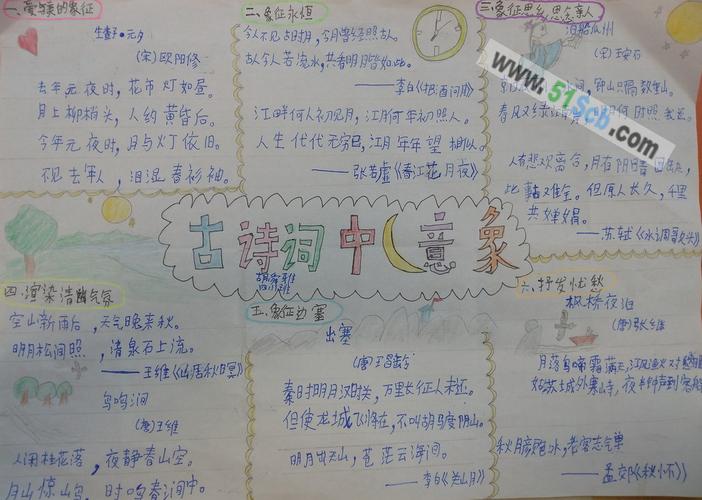 一、爱与美的象征
生查子·元夕
(宋)欧阳修
去年元夜时，花市灯如昼。
月上柳梢头，人约黄昏后。
今年元夜时，月与灯依旧。
不见去年人，泪湿春衫袖。
二、象征永恒
今人不见古时月，今月曾经照古人。
古人今人若流水，共看明月皆如此。
——李白《把酒问月》
江畔何人初见月，江月何年初照人。
人生代代无穷已，江月年年望相似。
——张若虚《春江花月夜》
三、象征思乡、思念亲人
泊船瓜州
(宋)王安石
间，钟山只隔数重山。
春风又绿江 何时照我还。
www.51Scb.com
人有悲欢离合，月有阴晴圆缺，
此事古难全。但愿人长久，千里
共婵娟。
——苏轼《水调歌头》
古诗词中意象
四、渲染清幽气氛
空山新雨后，天气晚来秋。
明月松间照，清泉石上流。
——王维《山居秋暝》
鸟鸣涧
(唐)王维
人闲桂花落，夜静春山空。
月出惊山鸟，时鸣春涧中。
五、象征边塞
出塞
(唐)王昌龄
秦时明月汉时关，万里长征人未还。
但使龙城飞将在，不叫胡马度阴山。
明月出天山，苍茫云海间。
——李白《关山月》
六、抒发忧愁
枫桥夜泊
(唐)张继
月落乌啼霜满天，江枫渔火对愁眠
姑苏城外寒山寺，夜半钟声到客船
秋月颜色冰，老客志气单
——孟郊《秋怀》